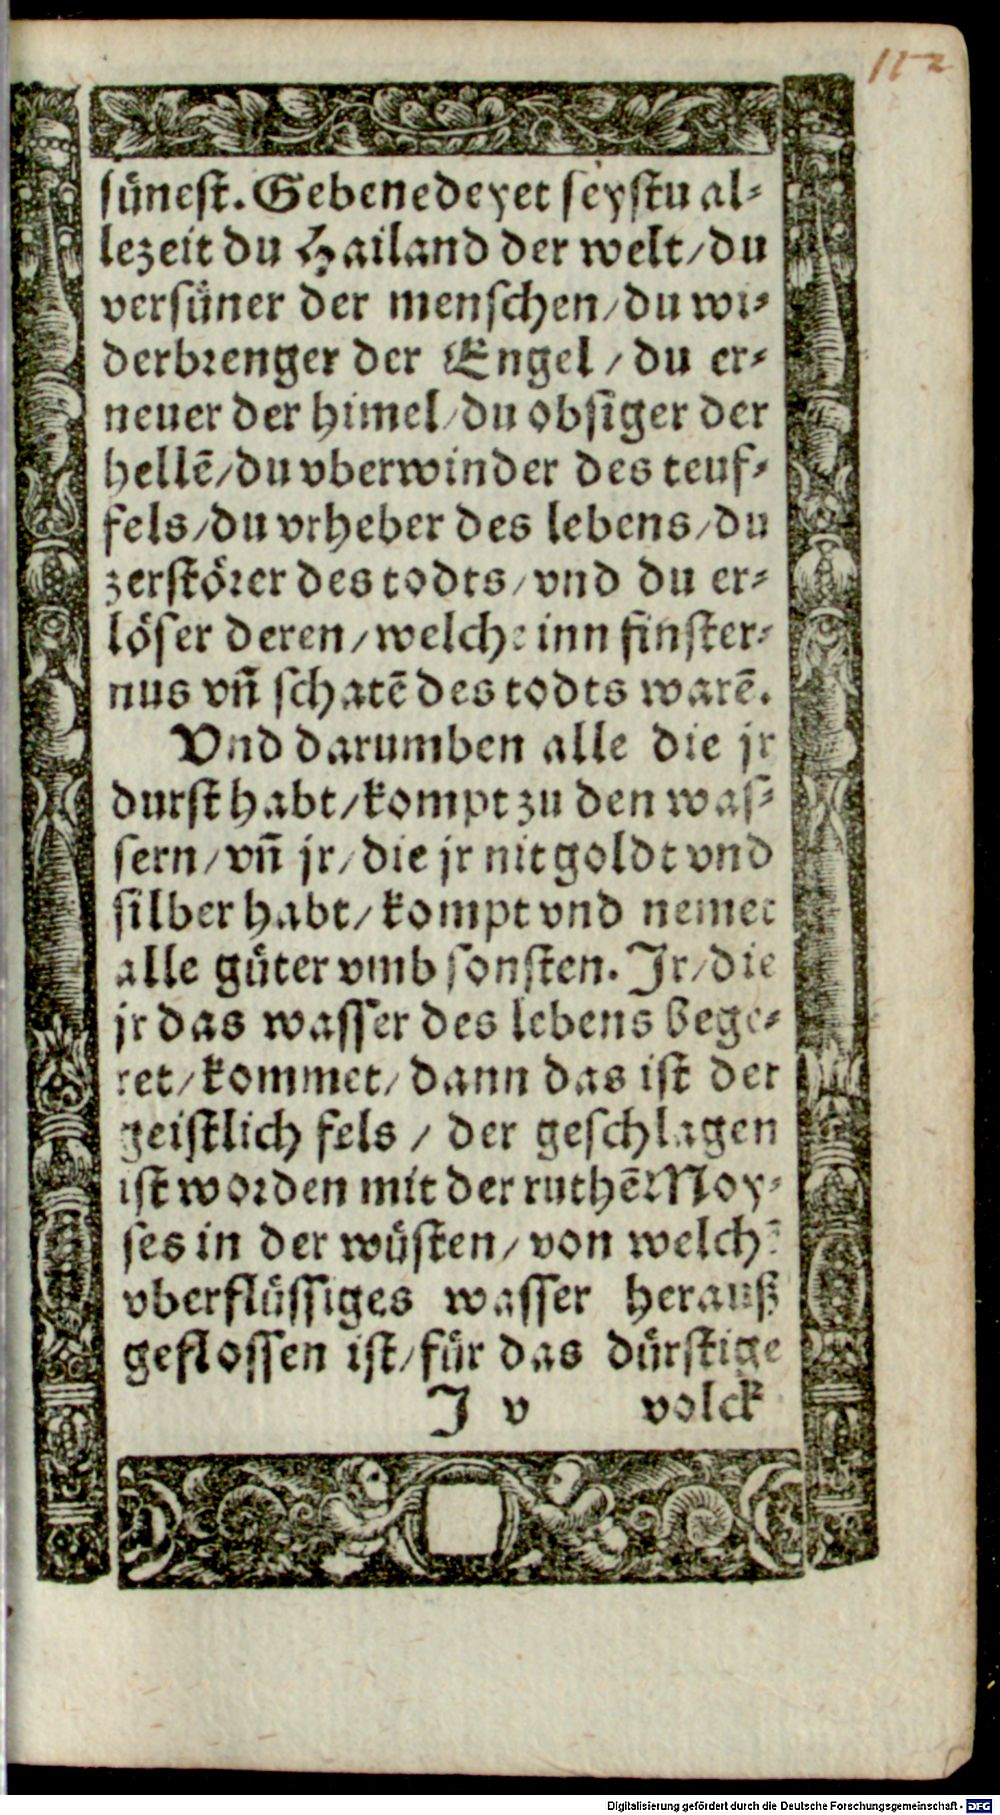 112
sünest. Gebenedeyet seystu al⸗
lezeit du Hailand der welt/du
versüner der menschen/du wi⸗
derbrenger der Engel/du er⸗
neuer der himel/du obsiger der
hellẽ/du vberwinder des teuf⸗
fels/du vrheber des lebens/du
zerstörer des todts/vnd du er⸗
löser deren/welche inn finster⸗
nus vñ schatẽ des todts warẽ.
Vnd darumben alle die jr
durst habt/kompt zu den was⸗
sern/vñ jr/die jr nit goldt vnd
silber habt/kompt vnd nemet
alle güter vmb sonsten. Jr/die
jr das wasser des lebens bege⸗
ret/kommet/dann das ist der
geistlich fels/der geschlagen
ist worden mit der ruthẽ Moy⸗
ses in der wüsten/von welchẽ
vberflüssiges wasser herauß
geflossen ist/für das dürstige
J v volck
Digitalisierung gefördert durch die Deutsche Forschungsgemeinschaft - DFG